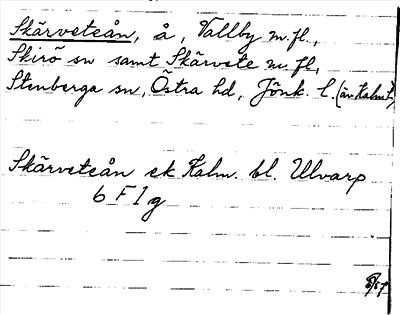 Skärveteån, å, Vallby m.fl.,
Skirö sn samt Skärvete m.fl,
Stenberga sn, Östra hd, Jönk. l. (äv. Kalm. l)
Skärveteån ek Kalm. bl. Ulvarp
6 F 1 g